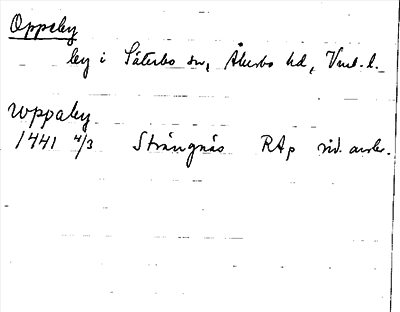 Oppeby
by i Säterbo sn, Åkerbo hd, Vml. l.
woppaby
1441 4/3 Strängnäs RAp vid. avskr.